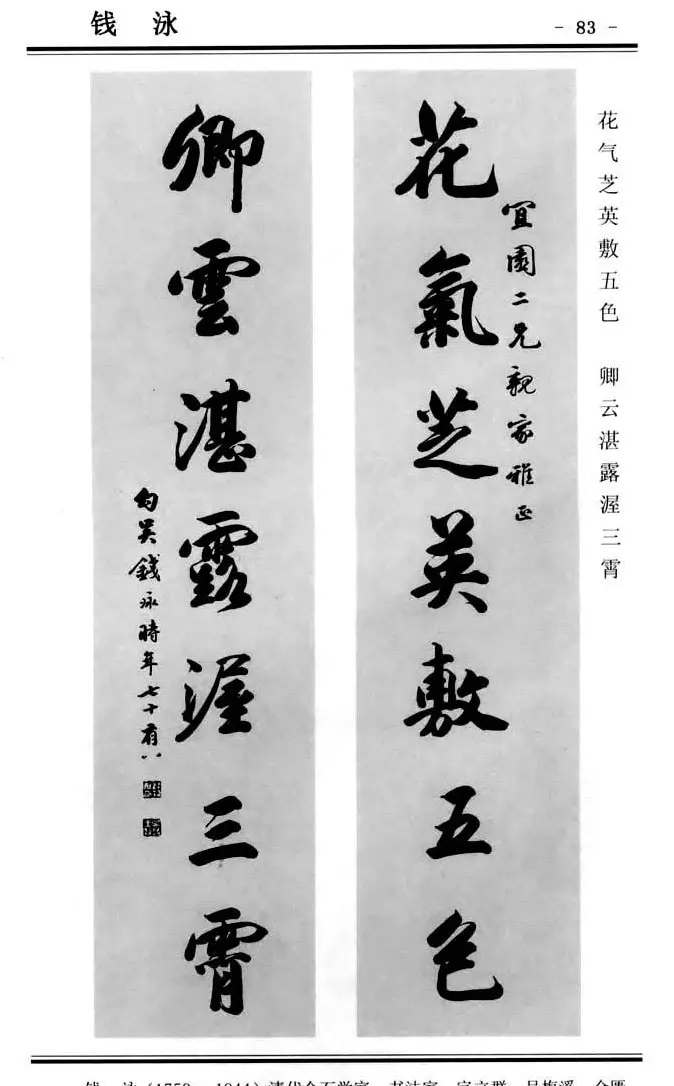 钱 泳
- 83 -
花气芝英敷五色 卿云湛露渥三霄
花氣芝英敷五色
宜園二兄親家雅正
卿雲湛露渥三霄
勾吴錢泳時年七十有八
钱 泳(1759—1844)清代金石学家、书法家。字立群,号梅溪,金匮